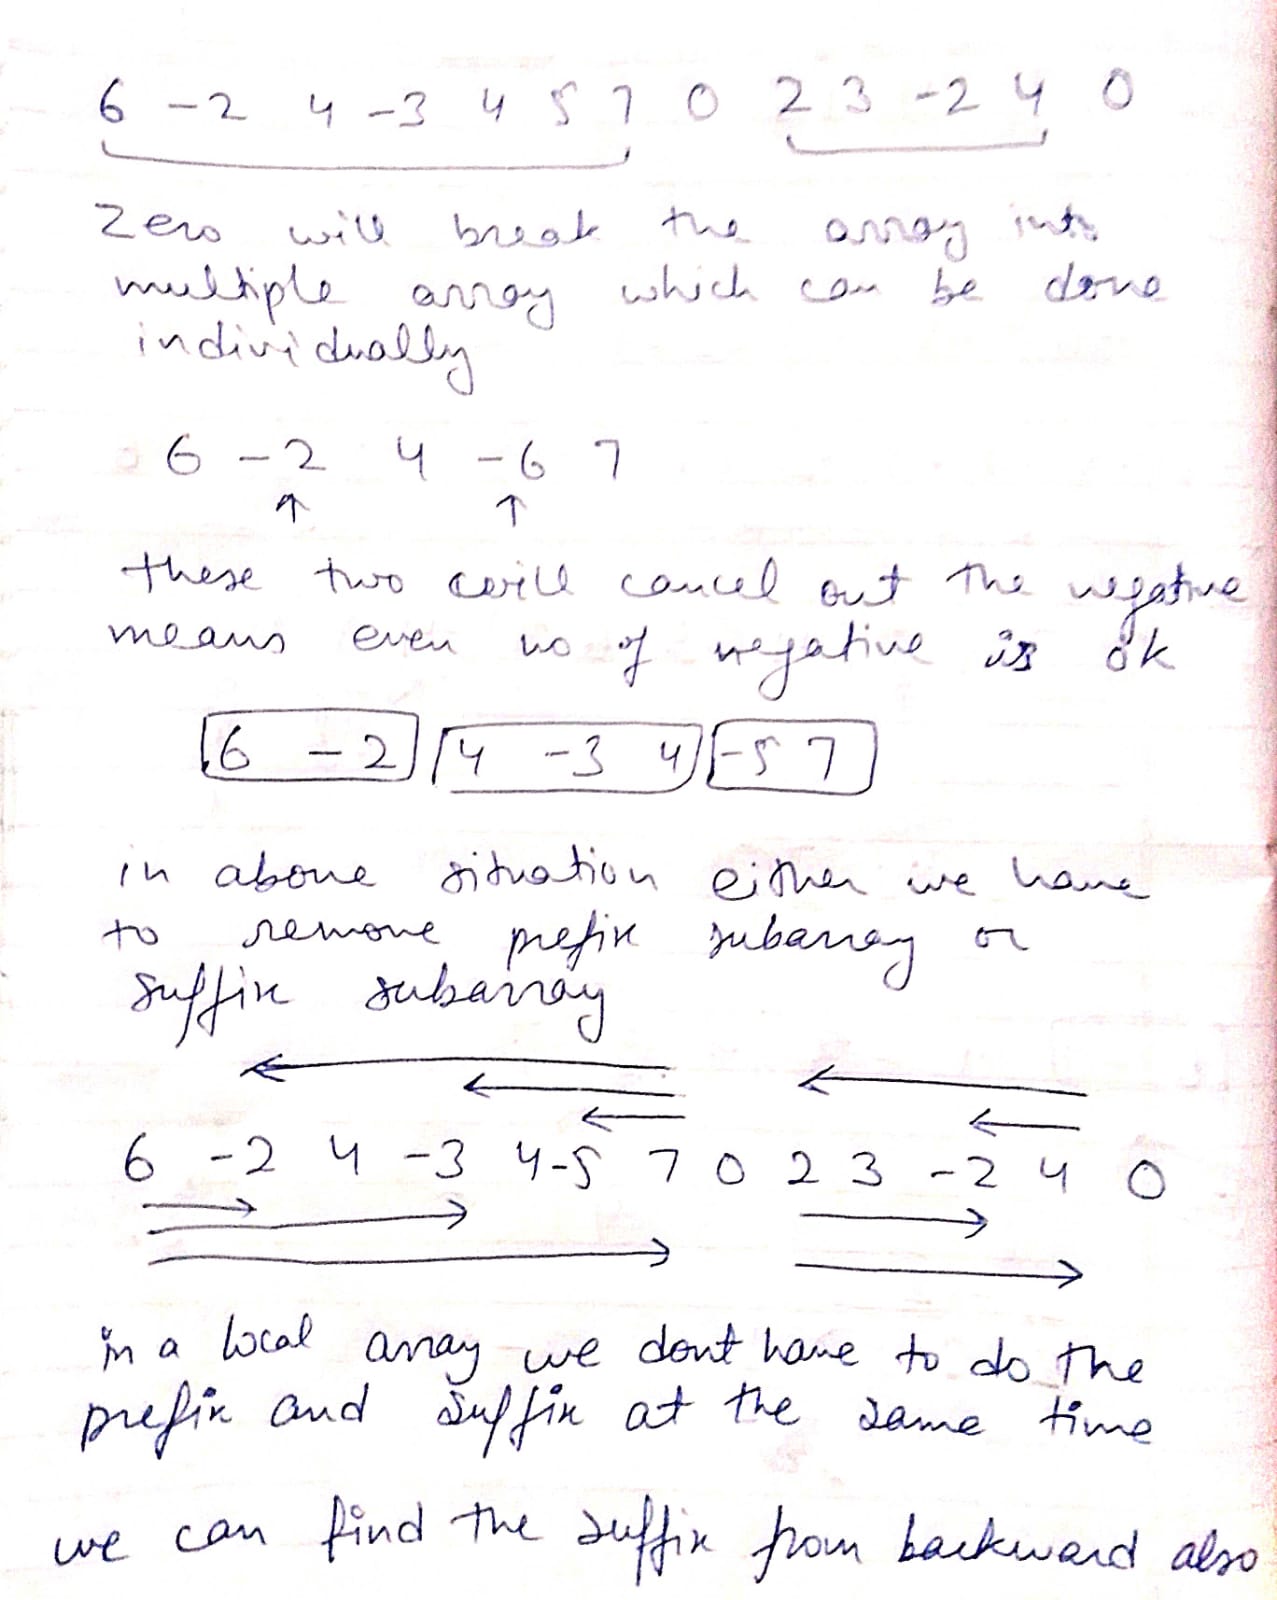 6 -2 4 -3 4 5 7 0 2 3 -2 4 0
Zero will break the array into
multiple array which can be done
individually
6 -2 4 -6 7
these two will cancel out the negative
means even no of negative is ok
6 -2 4 -3 4 -5 7
in above situation either we have
to remove prefix subarray or
suffix subarray
6 -2 4 -3 4 -5 7 0 2 3 -2 4 0
in a local array we dont have to do the
prefix and suffix at the same time
we can find the suffix from backward also